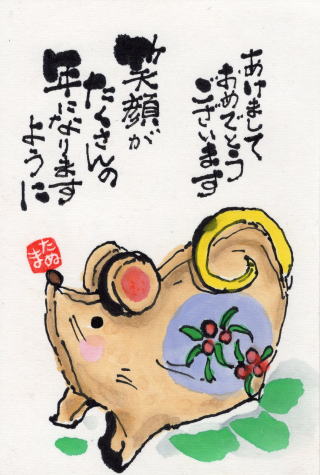 あけまして
おめでとう
ございます
笑顔が
たくさんの
年になります
ように
たぬ
ま